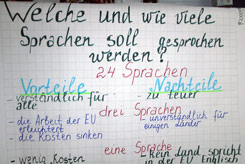 Welche und wie viele
Sprachen soll gesprochen
werden?
24 Sprachen
Vorteile Nachteile
- verständlich für alle - zu teuer
drei Sprachen
- die Arbeit der EU erleuchtert - unverständlich für einigen Länder
die Kosten sinken
eine Sprache
- wenig Kosten - kein Land spricht
in der EU Englisch